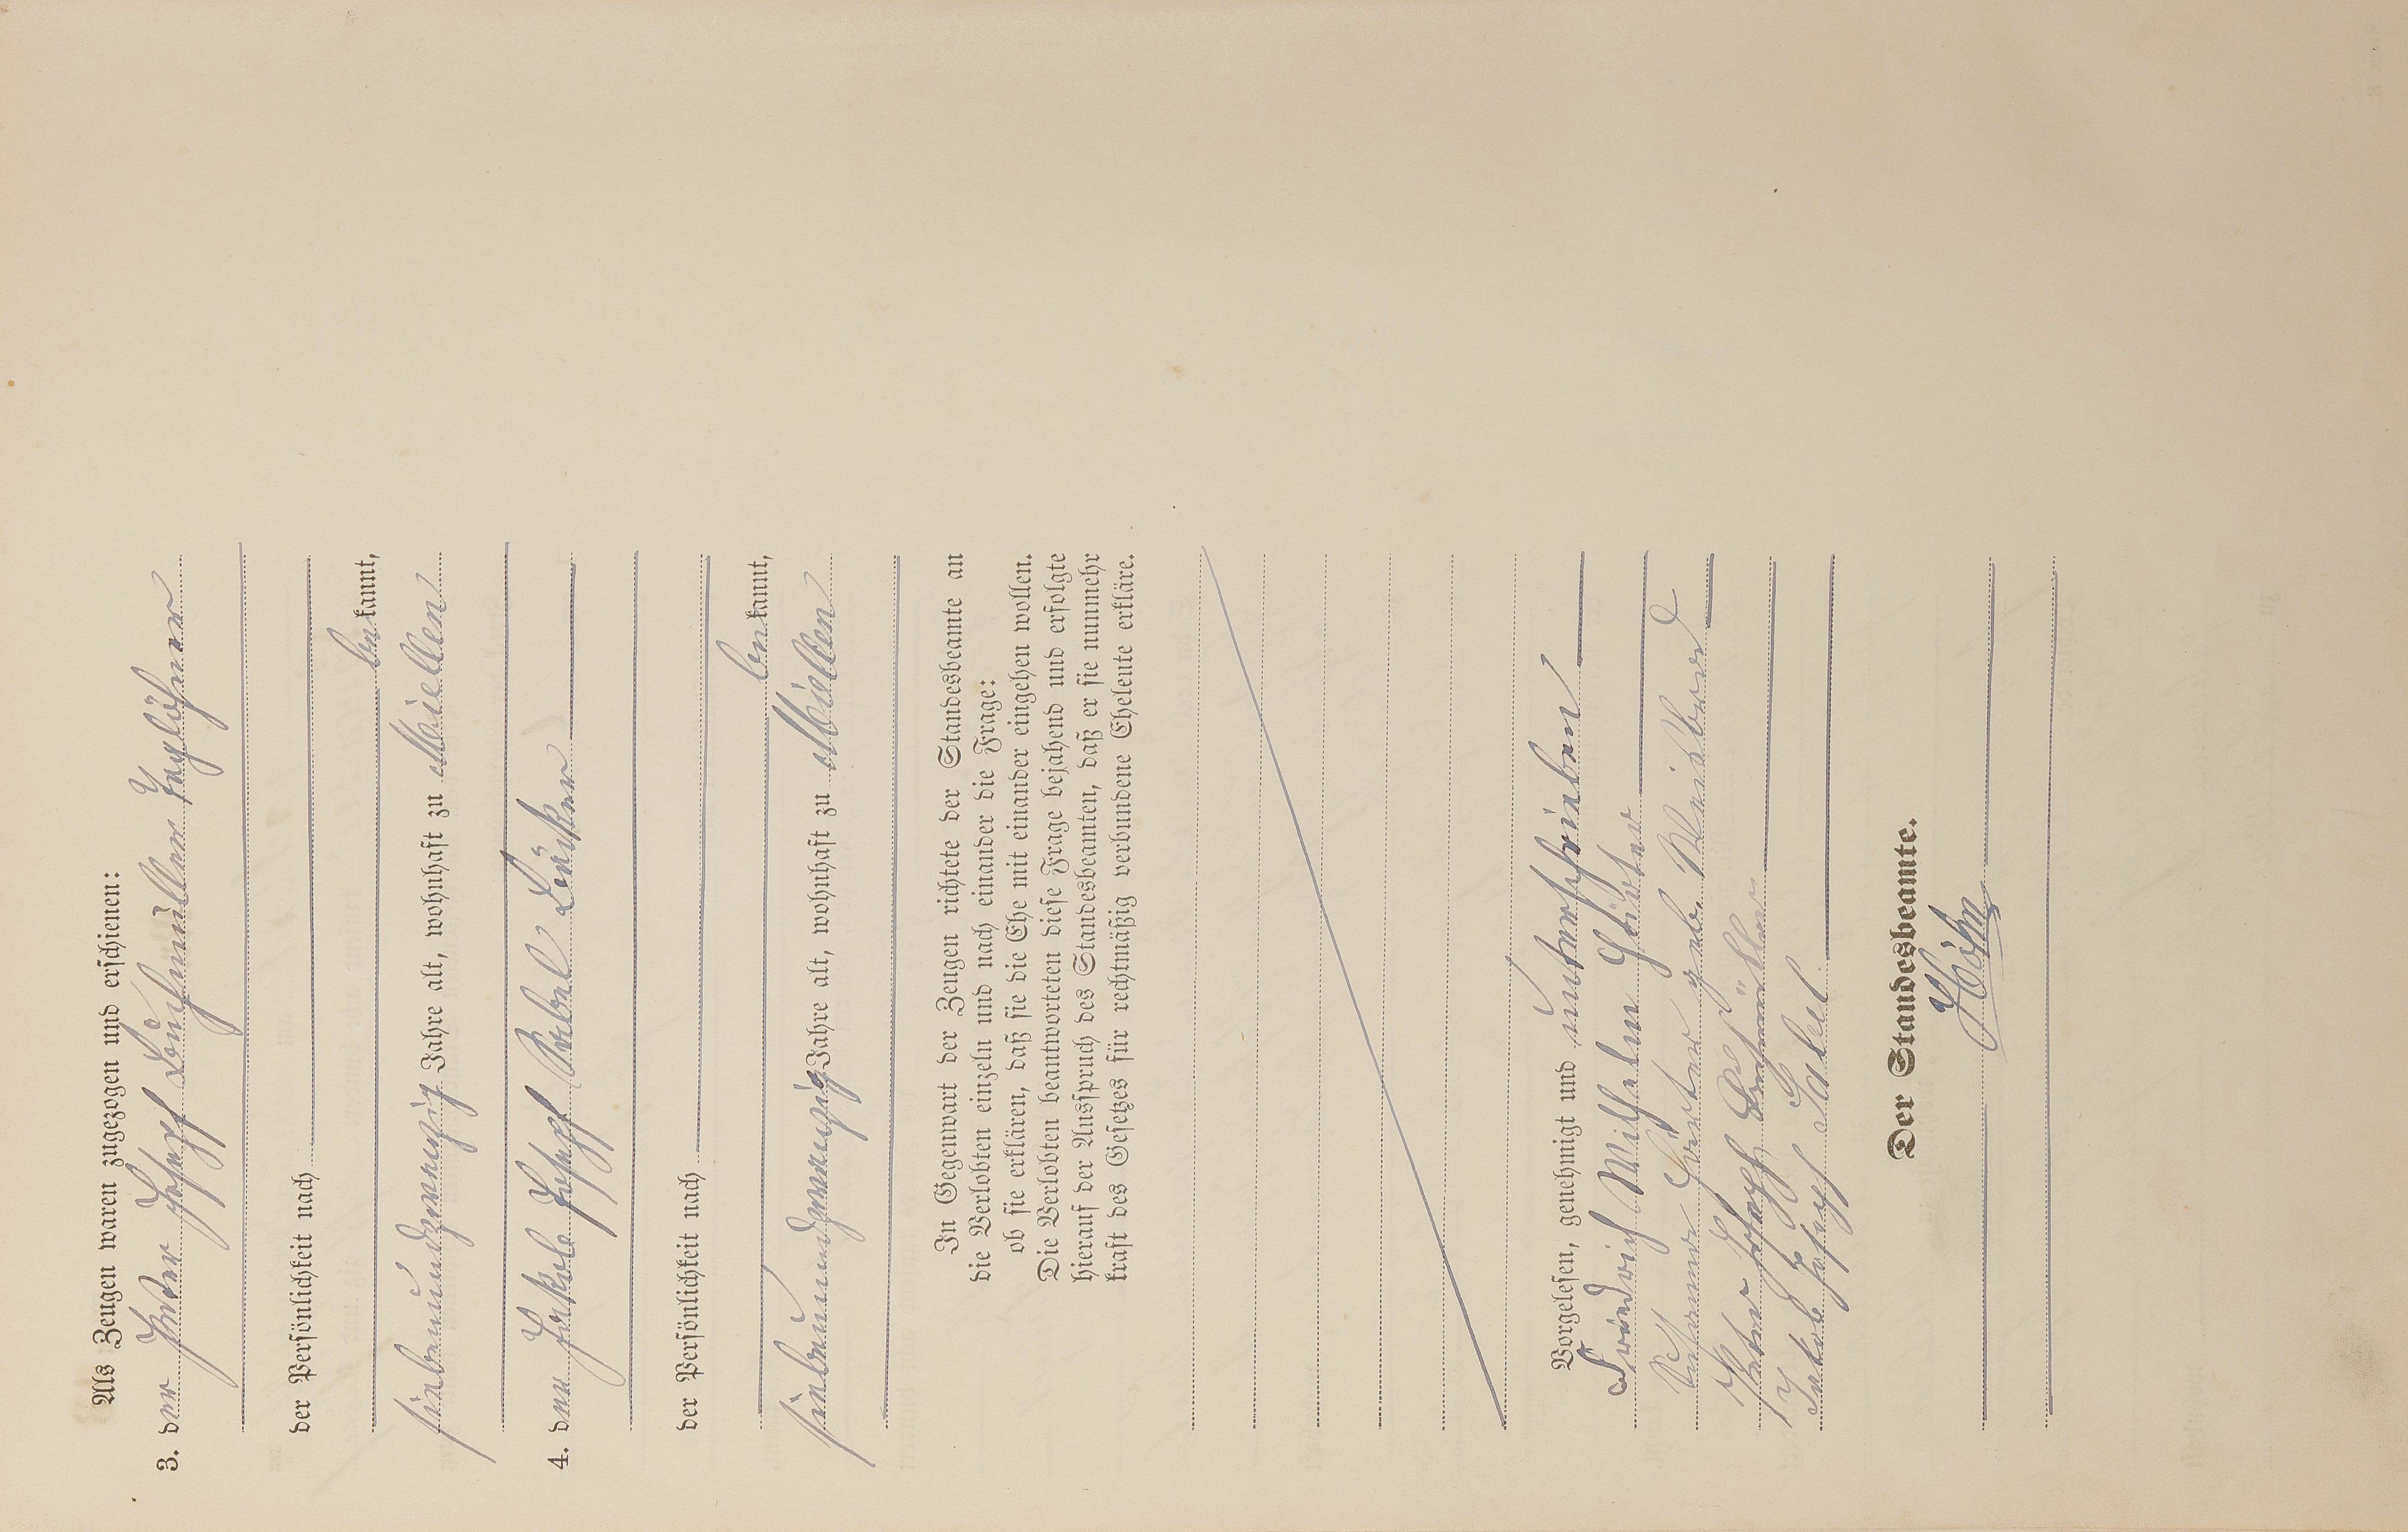 Als Zeugen waren zugezogen und erschienen:
3. der Peter Joseph Buchmüller Taglöhner
der Persönlichkeit nach
bekannt,
siebenundzwanzig Jahre alt, wohnhaft zu Miellen
4. der Jakob Joseph
der Persönlichkeit nach
bekannt,
siebenundzwanzig Jahre alt, wohnhaft zu Miellen
In Gegenwart der Zeugen richtete der Standesbeamte an
die Verlobten einzeln und nach einander die Frage:
ob sie erklären, daß sie die Ehe mit einander eingehen wollen.
Die Verlobten beantworteten diese Frage bejahend und erfolgte
hierauf der Ausspruch des Standesbeamten, daß er sie nunmehr
kraft des Gesetzes für rechtmäßig verbundene Eheleute erkläre.
Vorgelesen, genehmigt und unterschrieben
Friedrich Wilhelm
geb.
Peter Joseph
Jakob Joseph
Der Standesbeamte.
Höhn